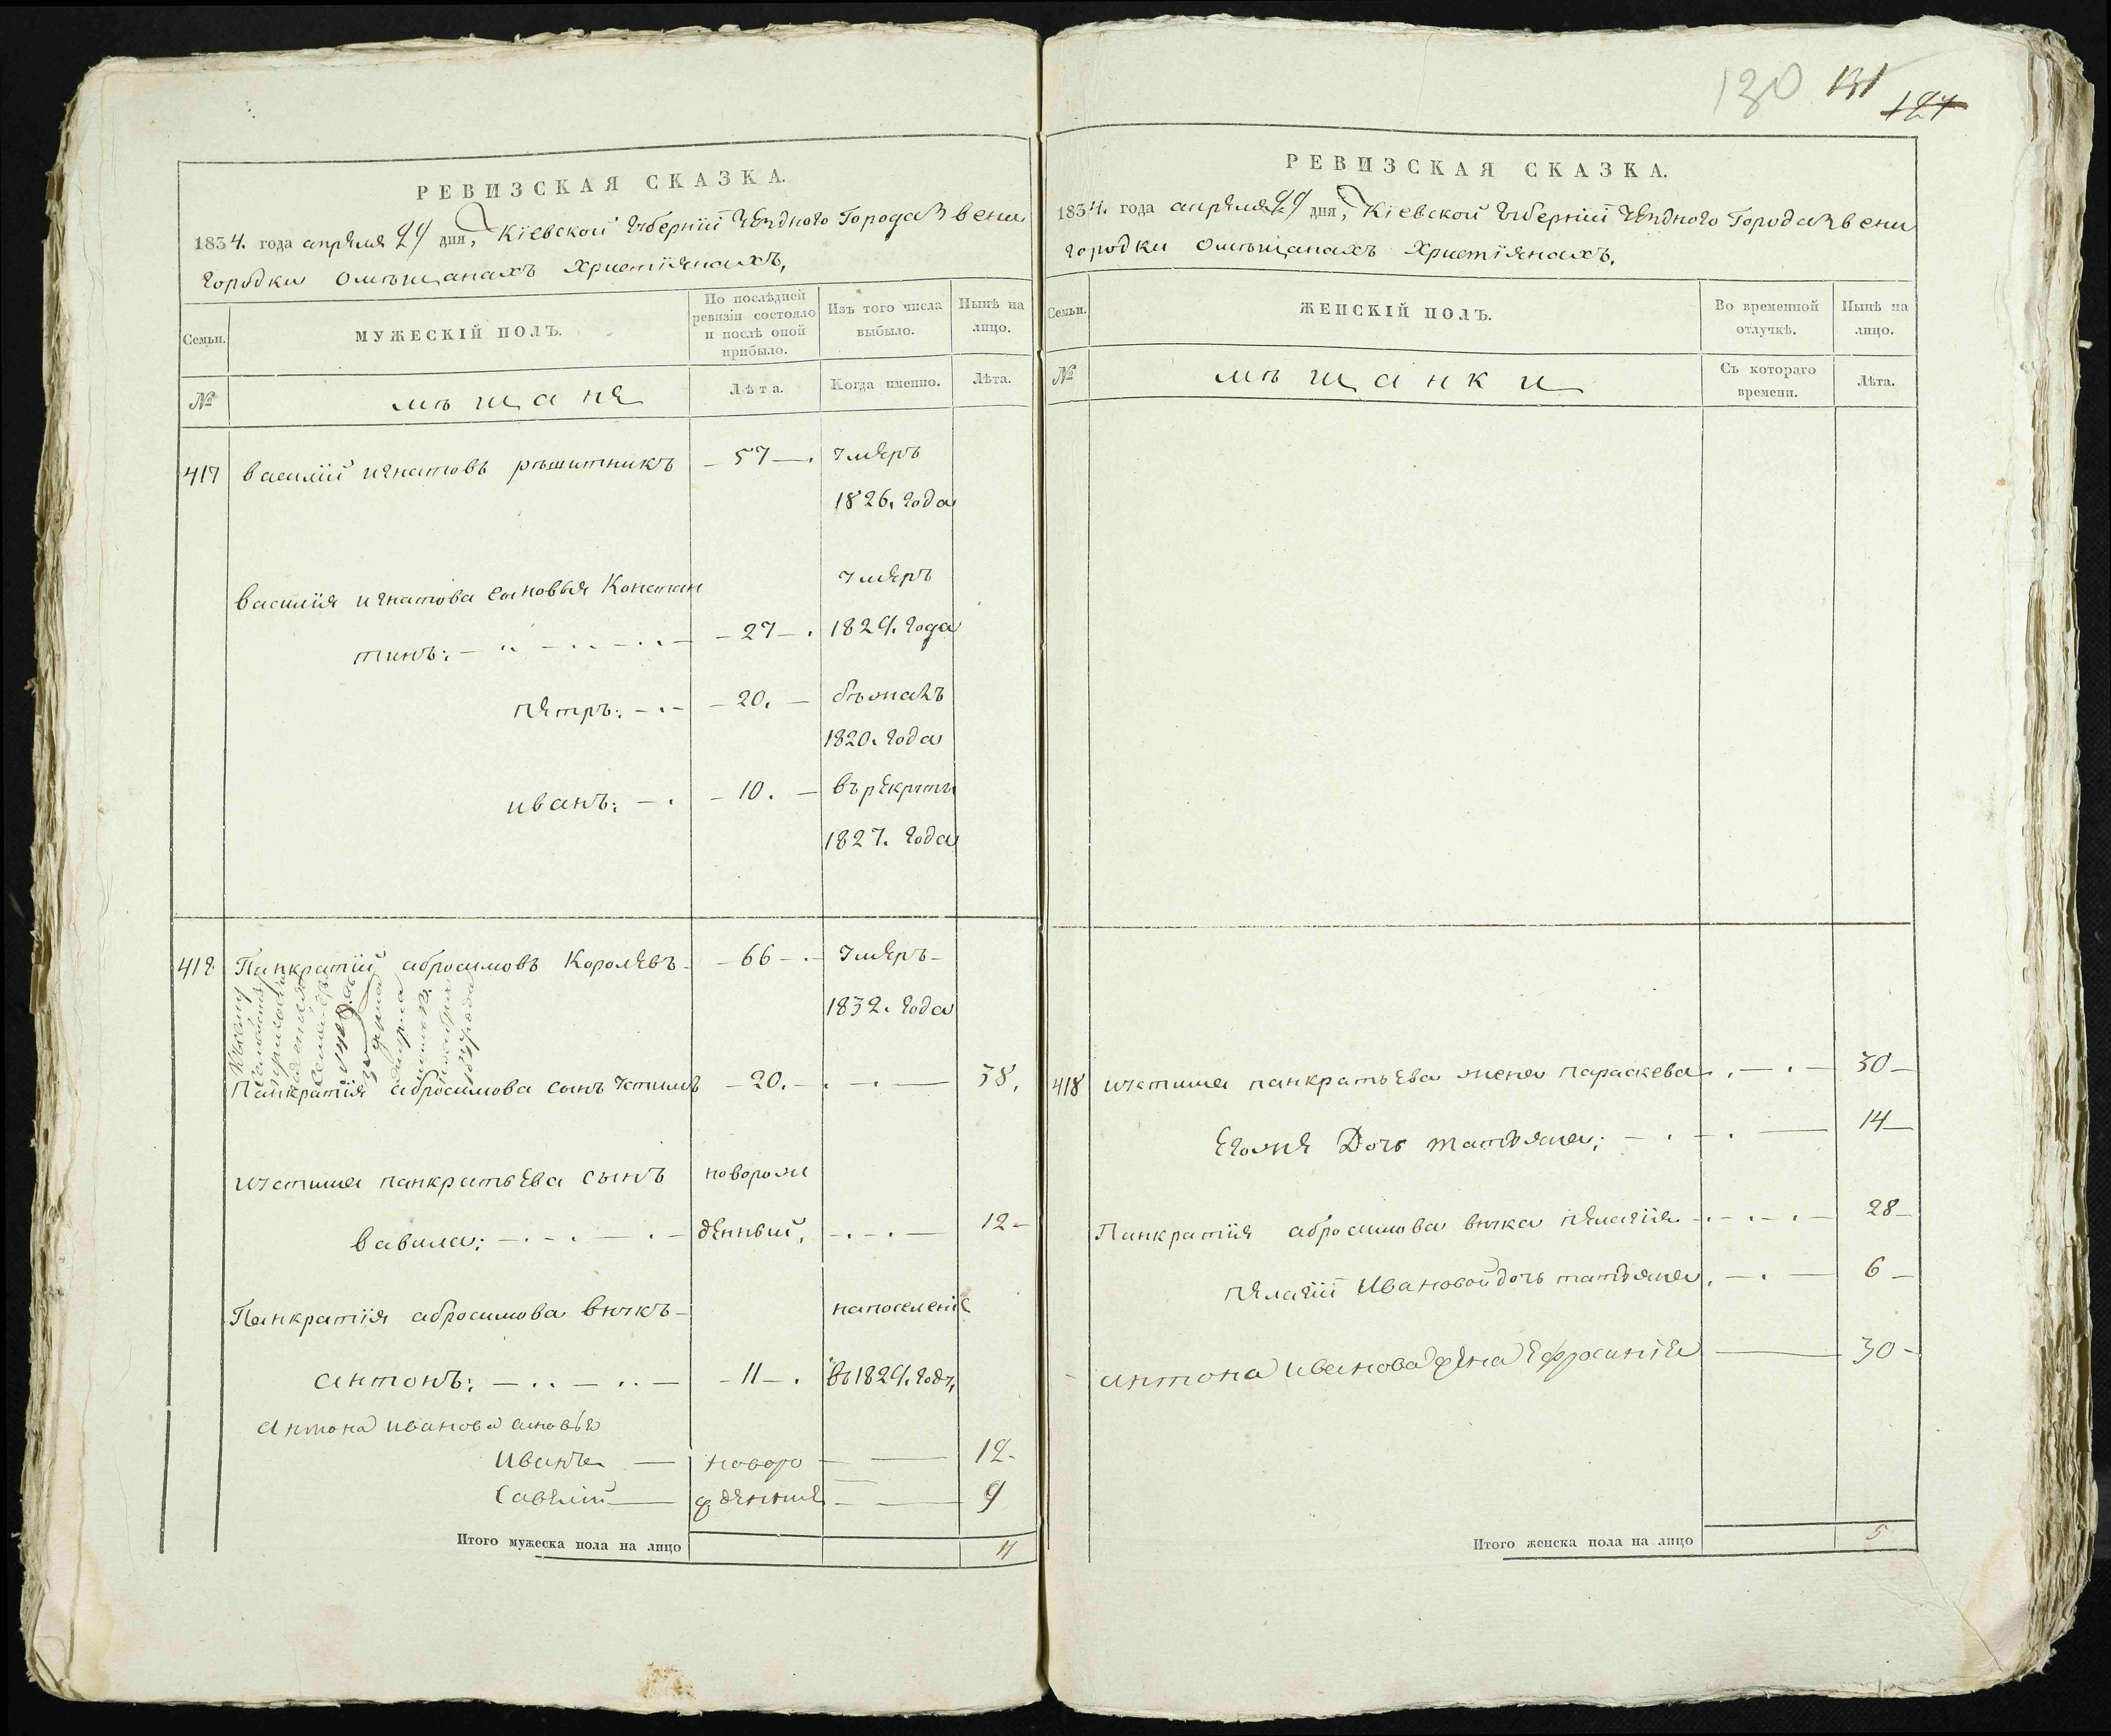 РЕВИЗСКАЯ СКАЗКА.
1834. года апреля 29 дня, Кіевской Губерніи Уезднаго Города Звени
городки Омѣщанахъ Христіянахъ,
Семьи.
МУЖЕСКІЙ ПОЛЪ.
По послѣдней
ревизіи состояло
и послѣ оной
прибыло.
Изъ того числа
выбыло.
Нынѣ на
лицо.
№
мѣщане
Лѣта.
Когда именно.
Лѣта.
417 Василій игнатовъ рѣшитникъ — 57 — умеръ
1826. года
василія игнатова сыновья Констан умеръ
тинъ: — 27 — 1829. года
петръ: — 20. — бѣжалъ
1820. года
иванъ: — 10. — въ рекруты
1827. года
418 Панкратій абросимовъ Королевъ — 66 — умеръ
1832. года
Панкратія абросимова сынъ устимъ — 20. — 38.
устима панкратьева сынъ новорож
вавила: — денный, — 12 —
Панкратія абросимова внукъ — напоселеніе
антонъ: — 11 — въ 1829. году,
Антона иванова сыновья
Иванъ — новоро — 12 -
Савелій — жденные — 9
Итого мужеска пола на лицо 4
130 131 127
РЕВИЗСКАЯ СКАЗКА.
1834. года апреля 29 дня, Кіевской Губерніи Уезднаго Города Звени
городки Омѣщанахъ Христіянахъ.
Семьи.
ЖЕНСКІЙ ПОЛЪ.
Во временной
отлучкѣ.
Нынѣ на
лицо.
№
мѣщанки
Съ котораго
времени.
Лѣта.
418 устима панкратьева жена параскева — 30 —
Егоже Дочь татьяна: — 14 —
Панкратія абросимова внука пелагія — 28 —
пелагіи Ивановой дочь татьяна, — 6 —
антона иванова жена Ефросинія — 30 -
Итого женска пола на лицо 5